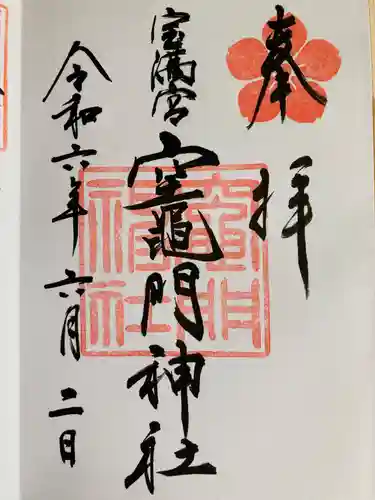 奉拝
宝満宮
竈門神社
令和六年六月二日
竈門
神社